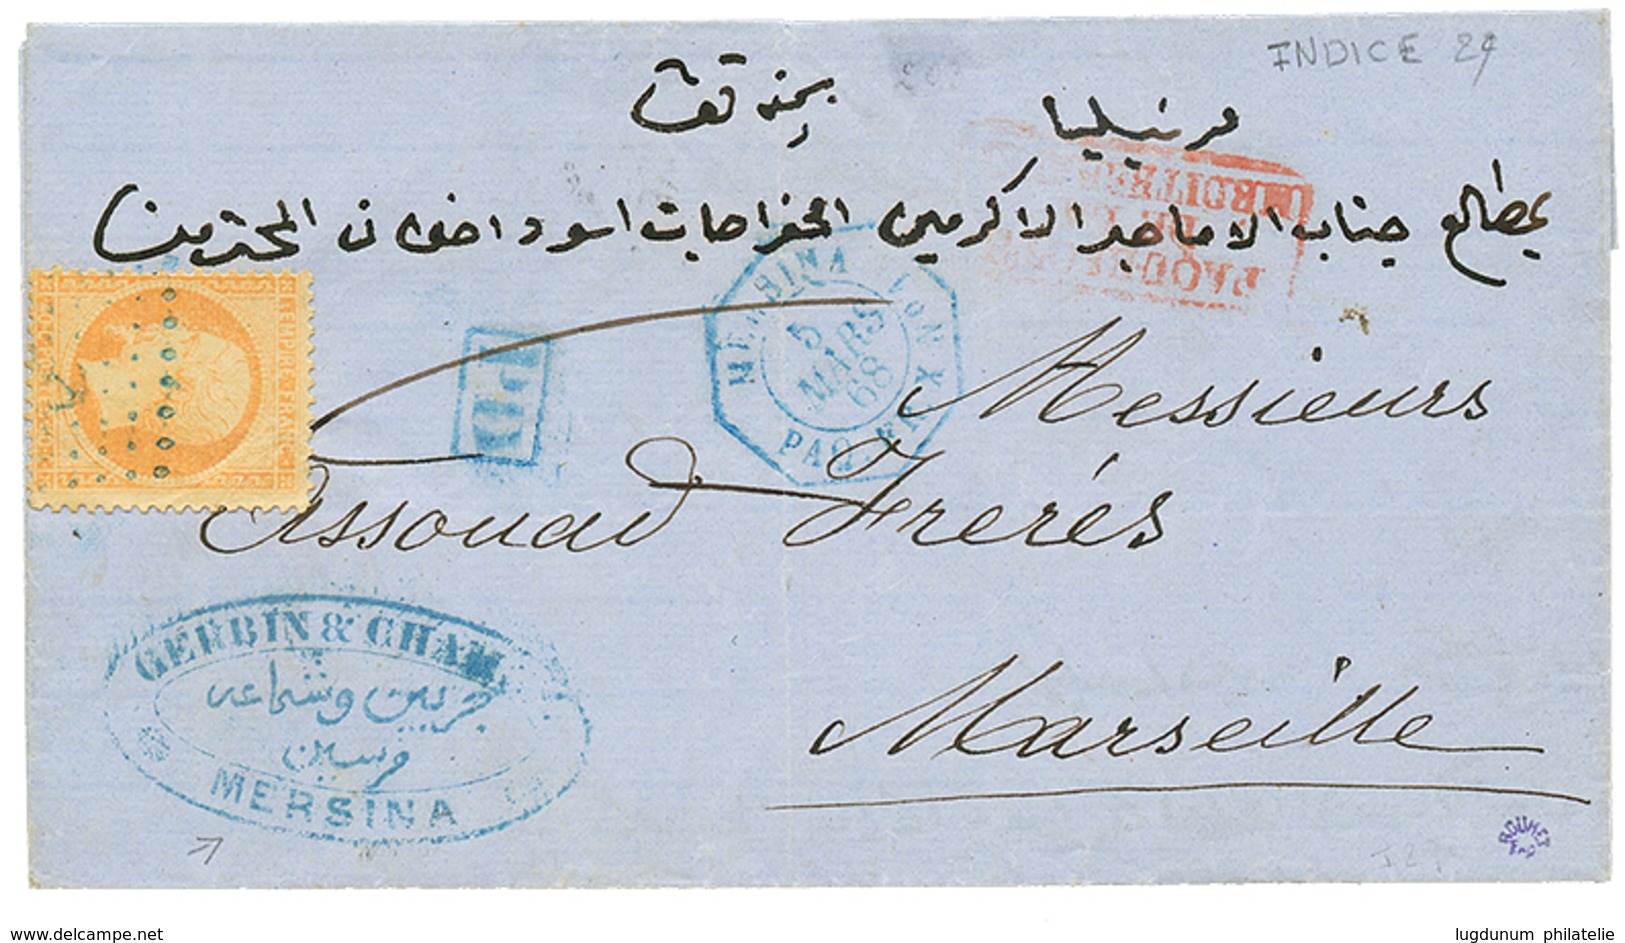 INDICE 24
بمنه تعا
مرسيليا
يطالع جناب الاماجد الاكرمين الخواجات اسود اخوان المحترمين
EMPIRE FRANC
PD
MERSINA
5
MARS
68
PAQ. FR. X No 1
PAQUEBOTS
Messieurs
Assouad Frerés
Marseille
GERBIN & CHAM
جربين وشماعه
مرسين
MERSINA
ROUMET
delcampe.net
lugdunum philatelie